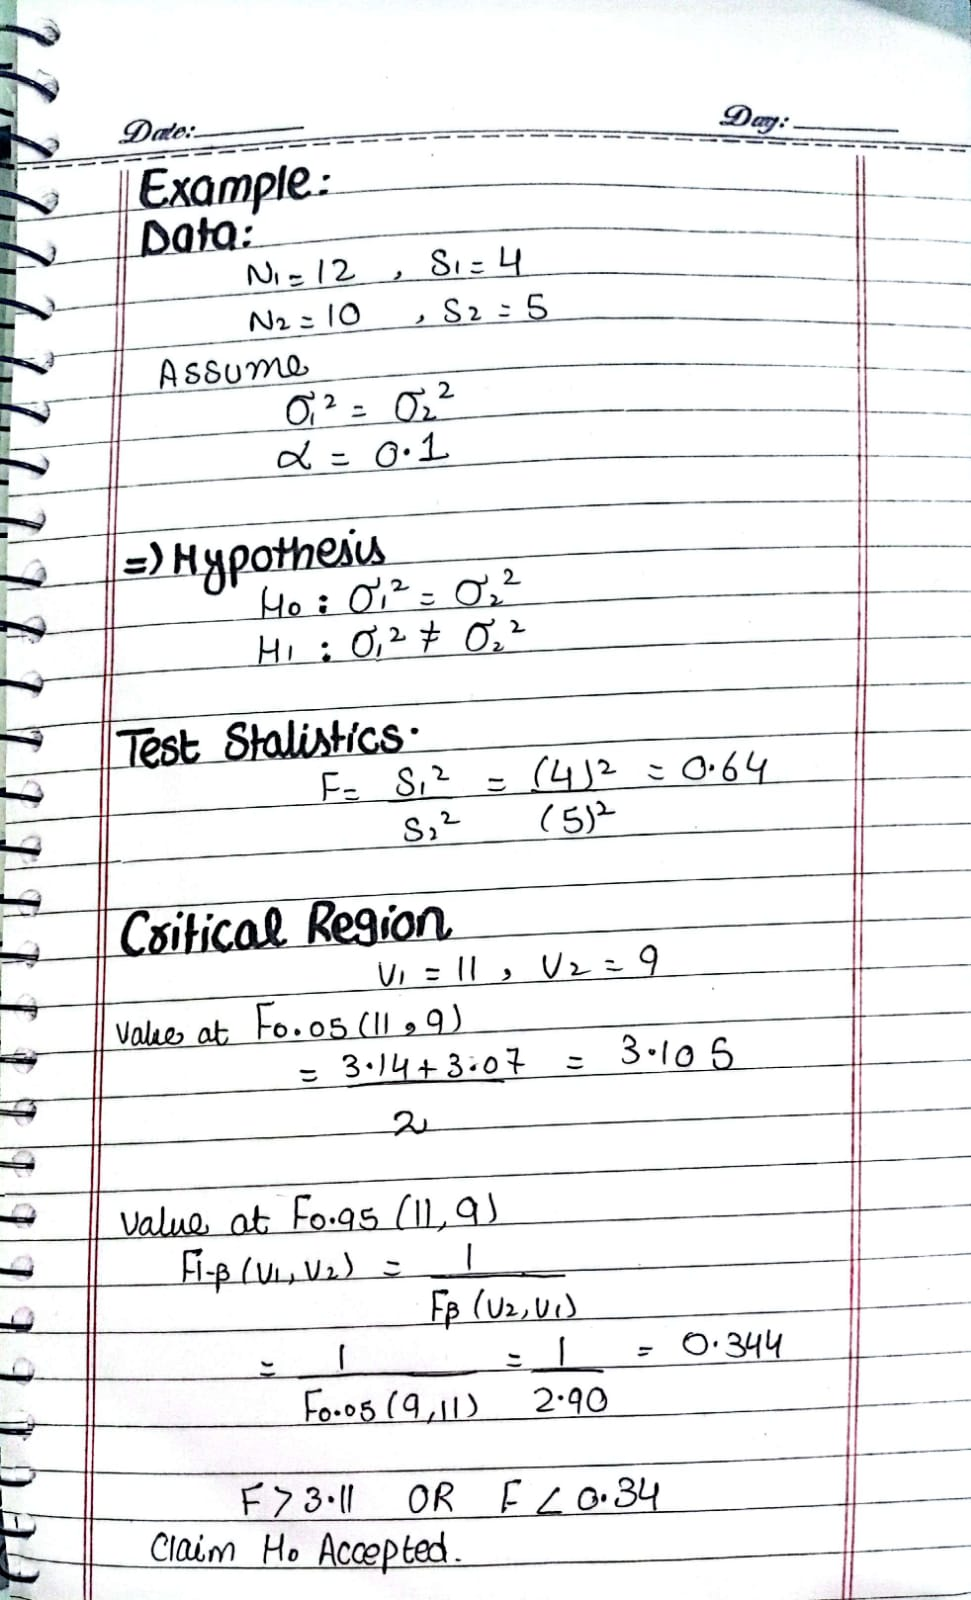 Date: Day:
Example:
Data:
N₁ = 12 , S₁ = 4
N₂ = 10 , S₂ = 5
Assume
σ₁² = σ₂²
α = 0.1
=) Hypothesis
H₀ : σ₁² = σ₂²
H₁ : σ₁² ≠ σ₂²
Test Statistics.
F = S₁² = (4)² = 0.64
S₂² (5)²
Critical Region
V₁ = 11 , V₂ = 9
Value at F₀.₀₅ (11 , 9)
= 3.14 + 3.07 = 3.105
2
Value at F₀.₉₅ (11, 9)
F₁₋ᵦ (V₁, V₂) = 1
Fᵦ (V₂, V₁)
= 1 = 1 = 0.344
F₀.₀₅ (9, 11) 2.90
F > 3.11 OR F < 0.34
Claim H₀ Accepted.